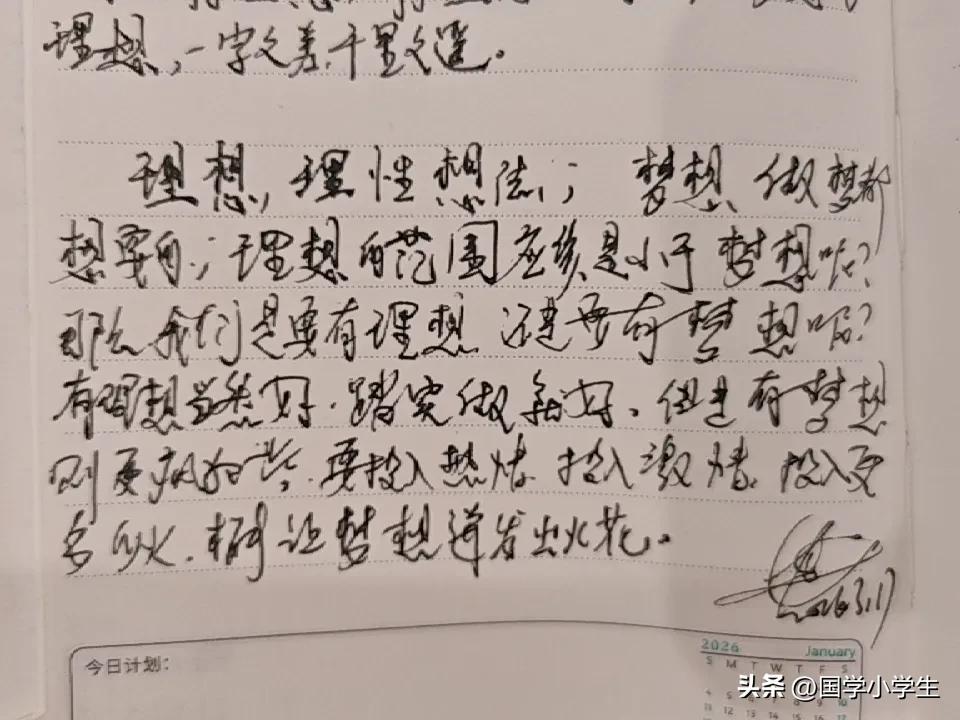 理想,一字之差,千里之遥。
理想,理性想法;梦想,做梦都
想要的;理想的范围应该是小于梦想呢?
那么我们是要有理想还是要有梦想呢?
有理想当然好,踏实做就好。但是有梦想
则更疯狂些,要投入热情,投入激情,投入更
多的火,才能让梦想迸发出火花。
今日计划:
2026 January
S M T W T F S
头条 @国学小学生